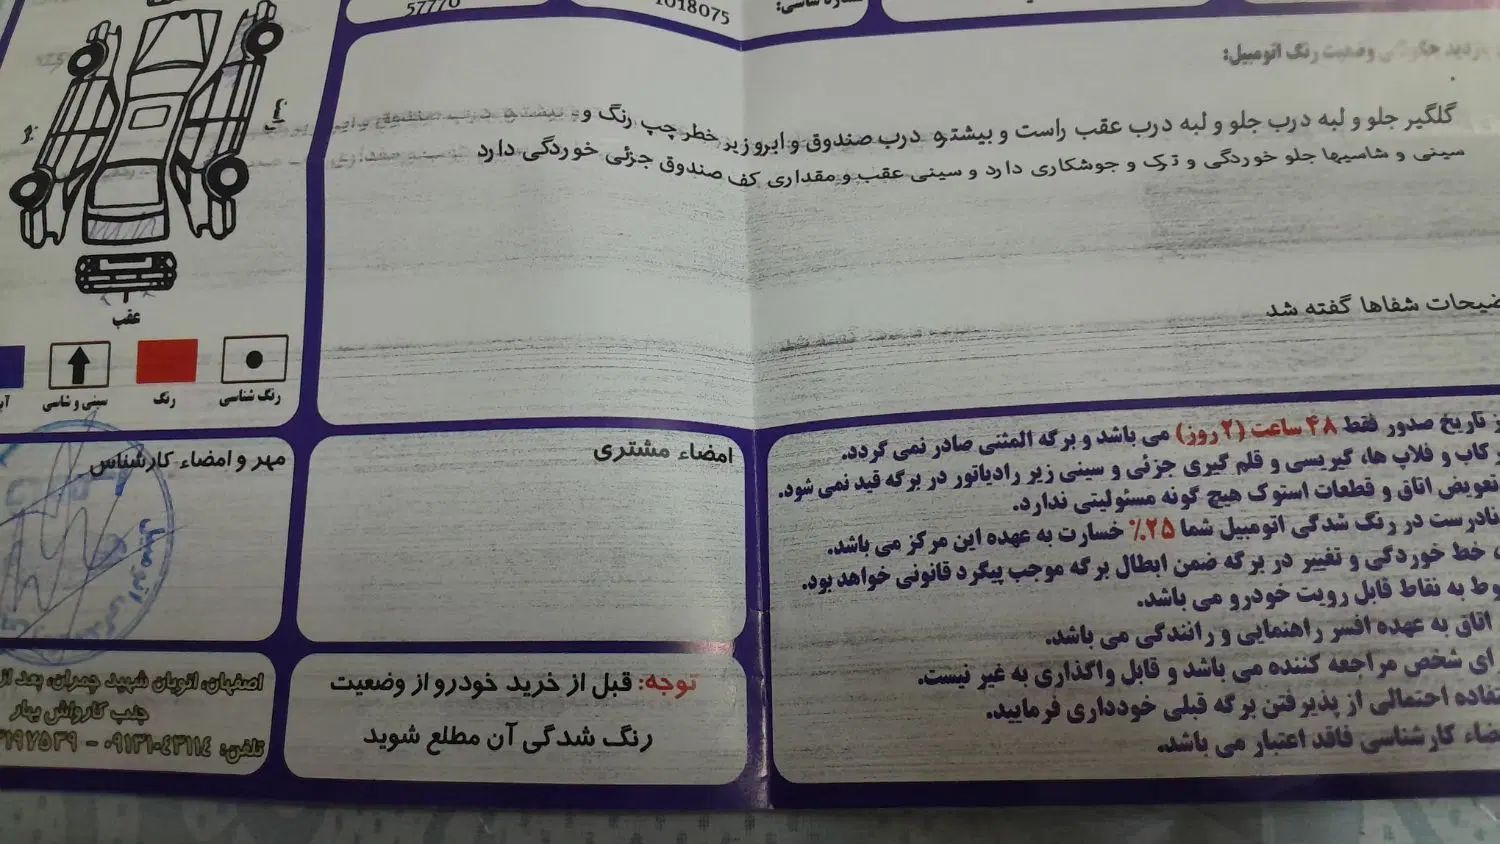 57770
1018075
وضعیت رنگ اتومبیل:
گلگیر جلو و لبه درب جلو و لبه درب عقب راست و بیشتره درب صندوق و ابرو زیر خطر چپ رنگ و
سینی و شاسیها جلو خوردگی و ترک و جوشکاری دارد و سینی عقب و مقداری کف صندوق جزئی خوردگی دارد
ضیحات شفاها گفته شد
عقب
رنگ شناسی
رنگ
سینی و شاسی
تاریخ صدور فقط ۴۸ ساعت (۲ روز) می باشد و برگه المثنی صادر نمی گردد.
کاب و فلاپ ها، گیریسی و قلم گیری جزئی و سینی زیر رادیاتور در برگه قید نمی شود.
تعویض اتاق و قطعات استوک هیچ گونه مسئولیتی ندارد.
نادرست در رنگ شدگی اتومبیل شما ۲۵٪ خسارت به عهده این مرکز می باشد.
خط خوردگی و تغییر در برگه ضمن ابطال برگه موجب پیگرد قانونی خواهد بود.
وط به نقاط قابل رویت خودرو می باشد.
اتاق به عهده افسر راهنمایی و رانندگی می باشد.
ای شخص مراجعه کننده می باشد و قابل واگذاری به غیر نیست.
تفاده احتمالی از پذیرفتن برگه قبلی خودداری فرمایید.
ضاء کارشناسی فاقد اعتبار می باشد.
امضاء مشتری
مهر و امضاء کارشناس
توجه: قبل از خرید خودرو از وضعیت
رنگ شدگی آن مطلع شوید
اصفهان، اتوبان شهید چمران، بعد از
جنب کارواش بهار
تلفن: ۰۹۱۳۱۰۴۳۱۱۴ -